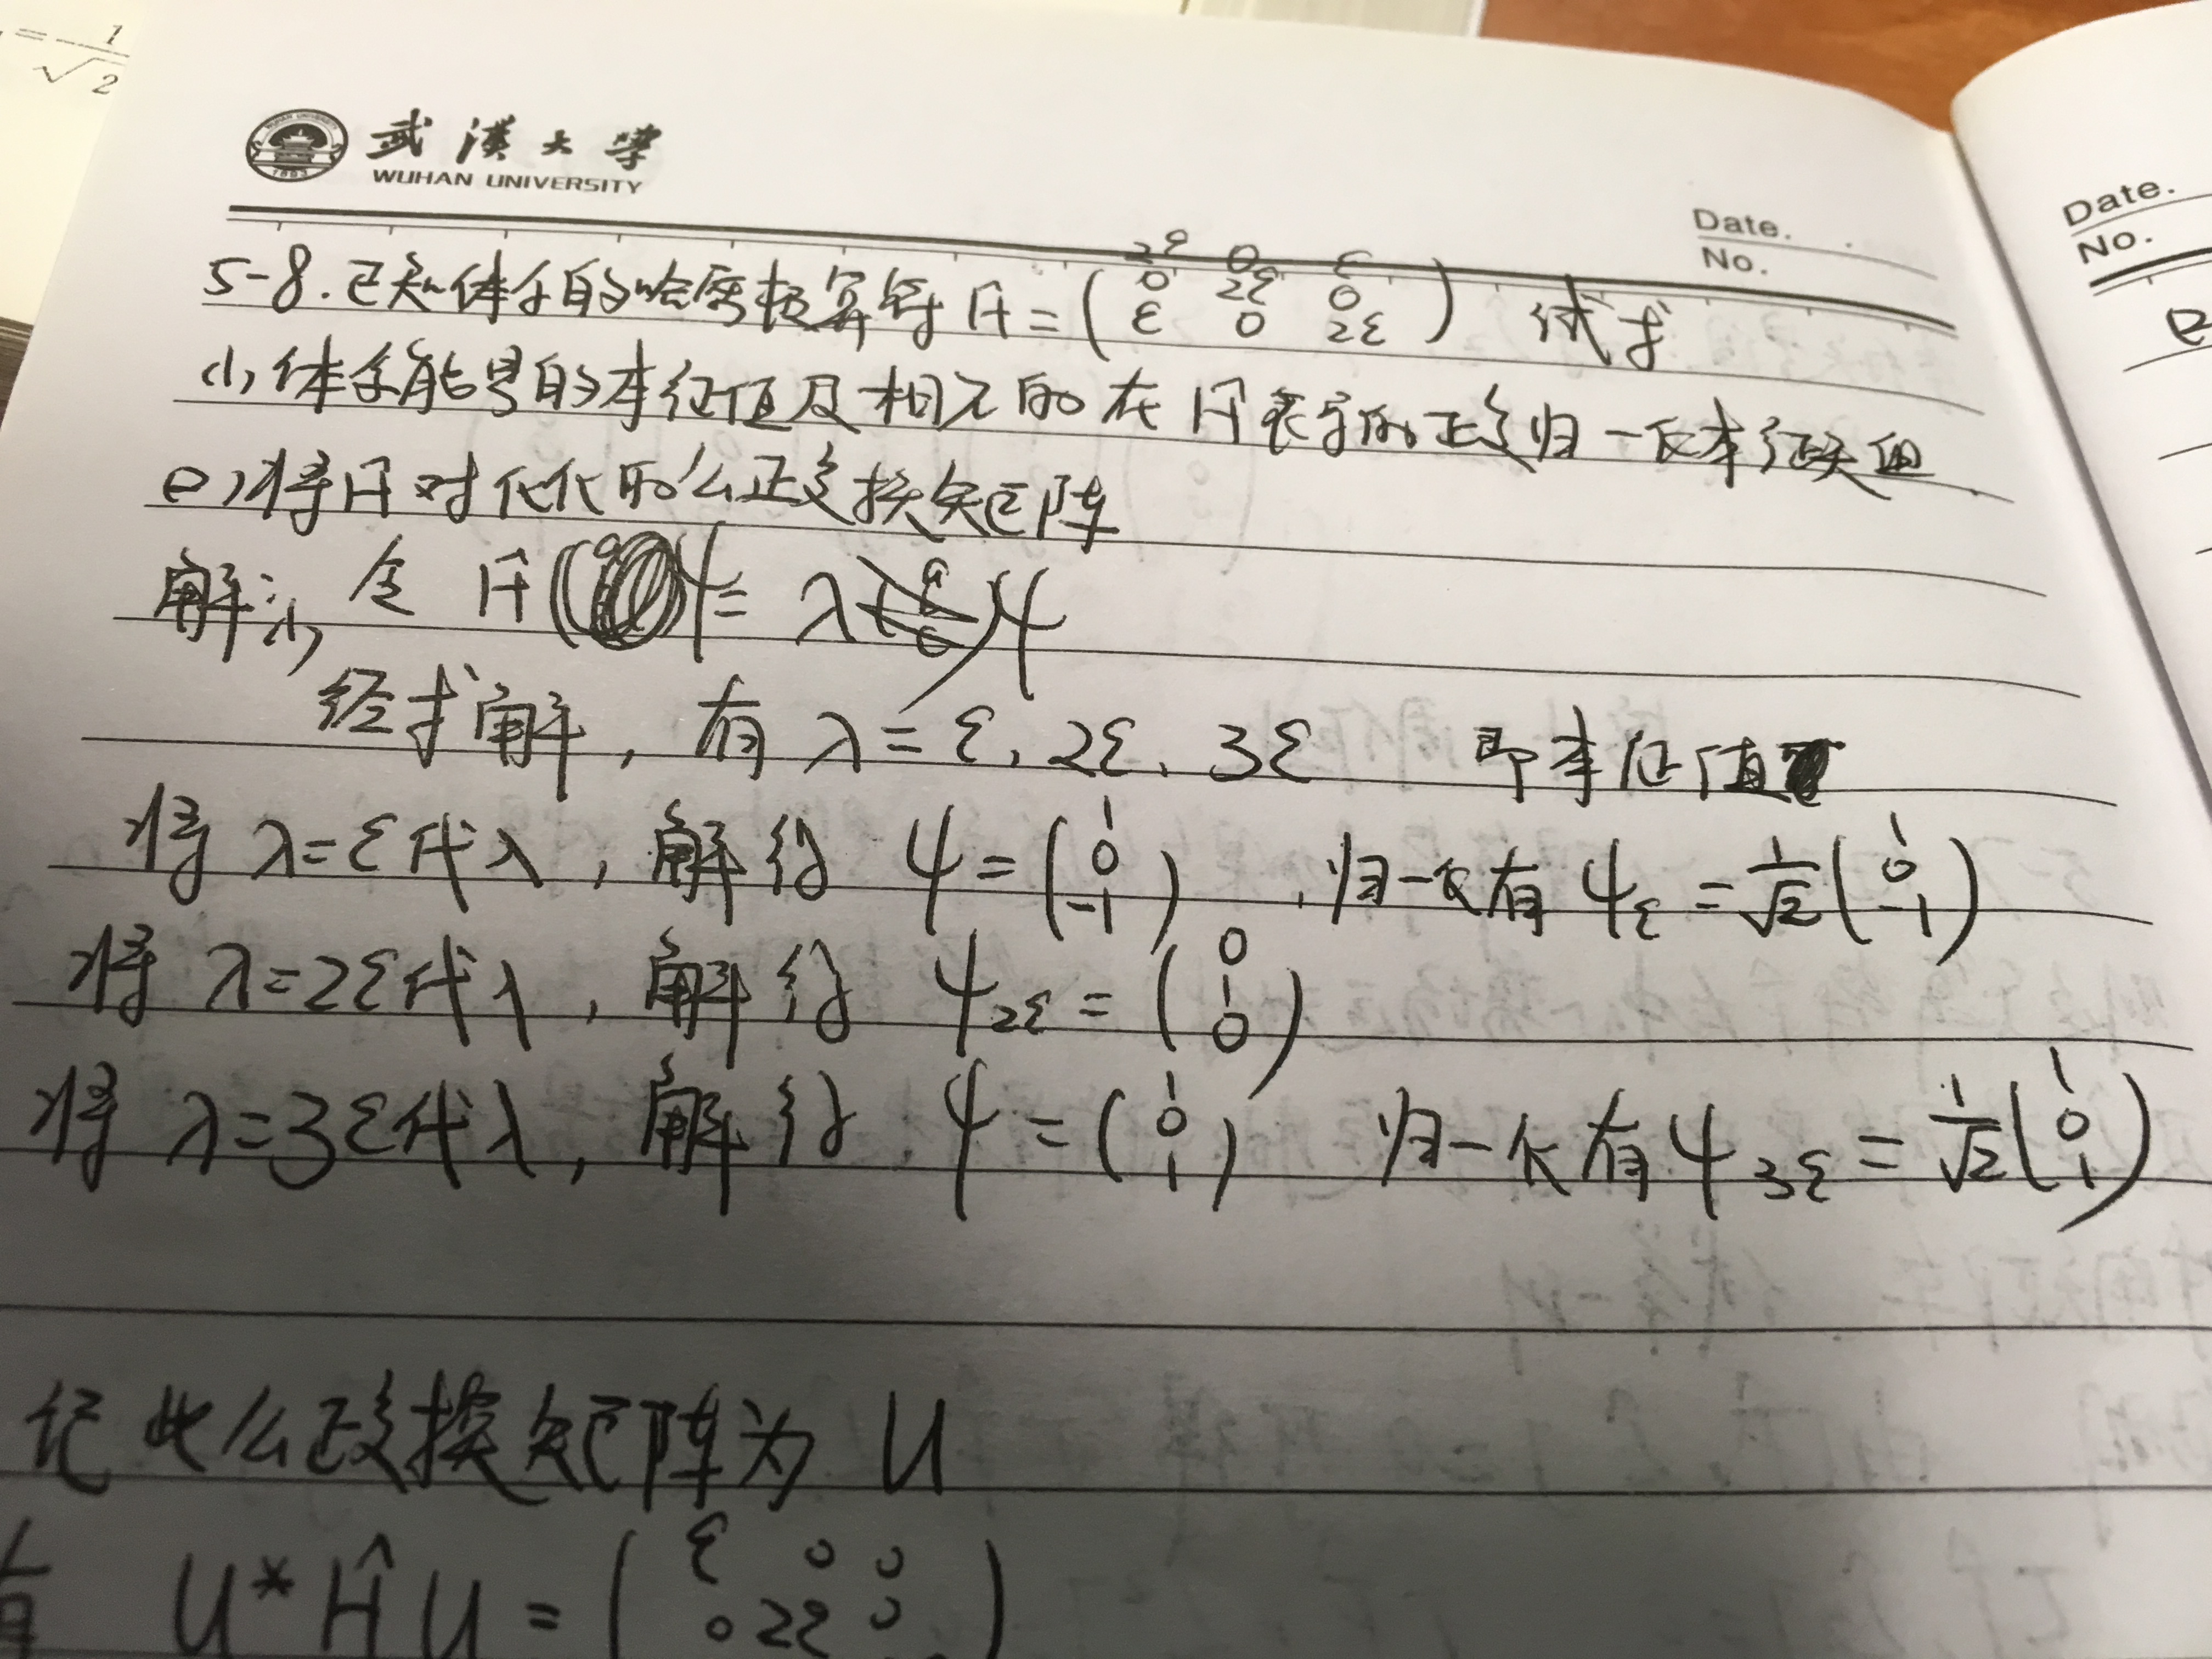 = 1/√2
武漢大學
WUHAN UNIVERSITY
Date.
No.
Date.
No.
5-8. 已知体系的哈密顿算符 Ĥ = (2ε 0 ε; 0 2ε 0; ε 0 2ε) 试求
(1) 体系能量的本征值及相应的在Ĥ表象的正交归一化本征矢组
(2) 将Ĥ对角化的么正变换矩阵
解: (1) 令 Ĥψ = λψ
经求解, 有 λ = ε, 2ε, 3ε 即本征值
将 λ=ε代入, 解得 ψ = (1 0 -1), 归一化有 ψε = 1/√2 (1 0 -1)
将 λ=2ε代入, 解得 ψ2ε = (0 1 0)
将 λ=3ε代入, 解得 ψ = (1 0 1) 归一化有 ψ3ε = 1/√2 (1 0 1)
记此么正变换矩阵为 U
有 U*ĤU = (ε 0 0; 0 2ε 0